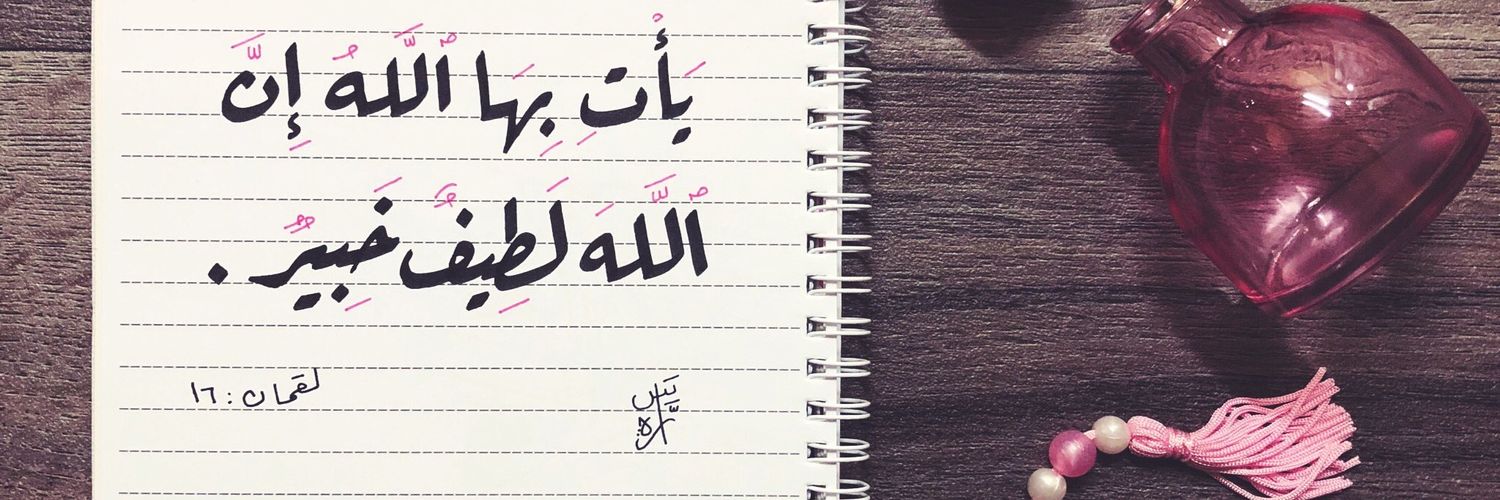 يَأْتِ بِهَا ٱللَّهُ إِنَّ
ٱللَّهَ لَطِيفٌ خَبِيرٌ .
لقمان : ١٦